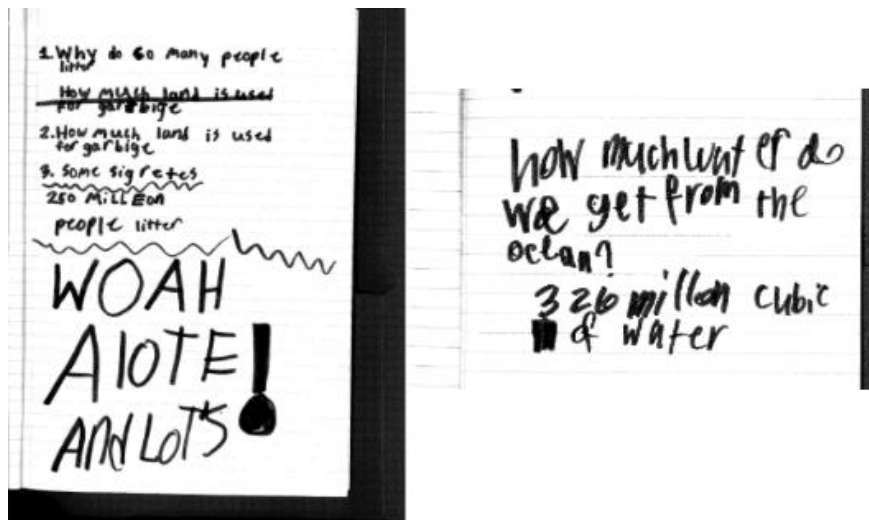 1. Why do so many people
litter
How much land is used
for garbige
2. How much land is used
for garbige
3. Some sigretes
250 millEon
people litter
WOAH
AlOTE!
ANd LOTS
how much wat er do
we get from the
ocean?
326 millon cubic
of water